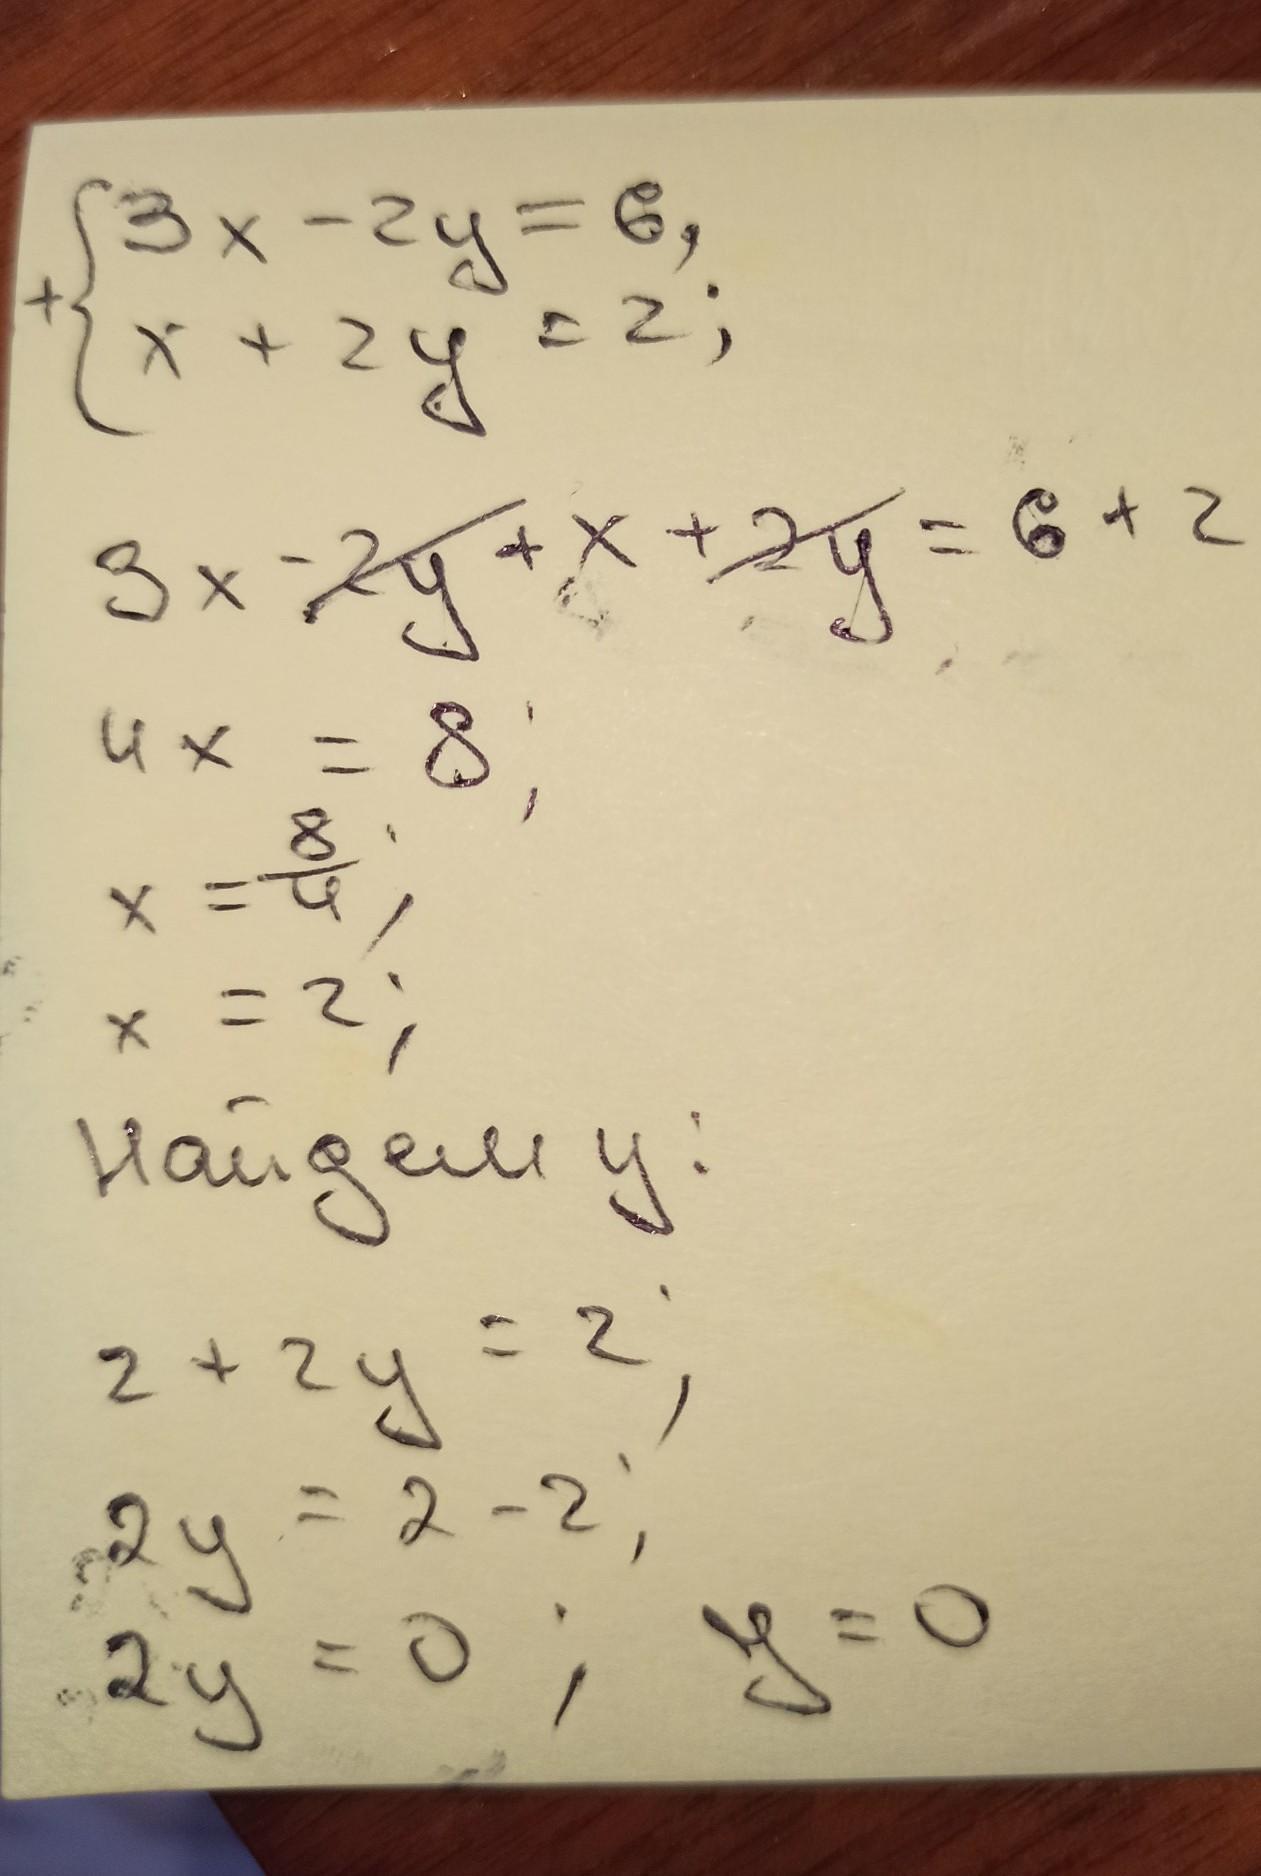 + { 3x - 2y = 6,
x + 2y = 2;
3x - 2y + x + 2y = 6 + 2
4x = 8;
x = 8/4;
x = 2;
Найдем y:
2 + 2y = 2;
2y = 2 - 2;
2y = 0; y = 0